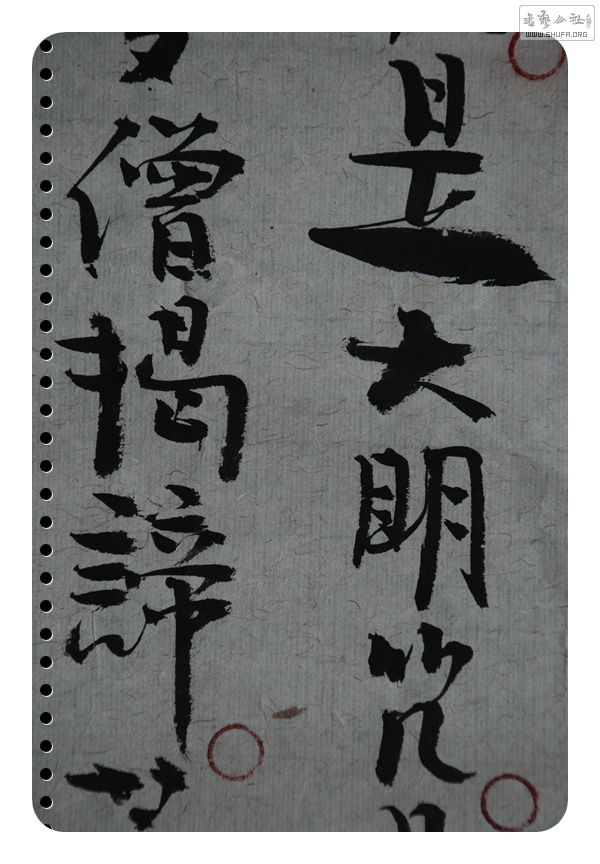 是大明咒
僧揭諦
書藝公社
WWW.SHUFA.ORG